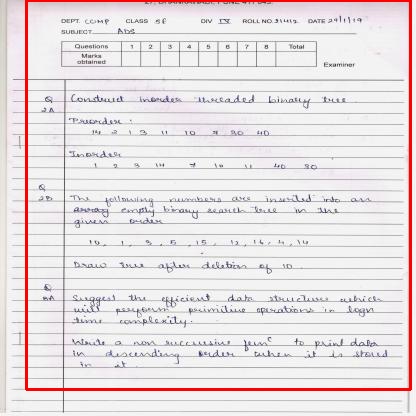 DEPT. COMP CLASS SE DIV IV ROLL NO. 21412 DATE 29/1/19
SUBJECT ADS
Questions 1 2 3 4 5 6 7 8 Total
Marks obtained
Examiner
Q 2A Construct inorder threaded binary tree.
Preorder :
14 2 1 3 11 10 7 30 40
Inorder
1 2 3 14 7 10 11 40 30
Q 2B The following numbers are inserted into an
array empty binary search tree in the
given order
10, 1, 3, 5, 15, 12, 16, 4, 14
Draw tree after deletion of 10.
Q 3A Suggest the efficient data structure which
will perform primitive operations in logn
time complexity.
Write a non recursive func to print data
in descending order when it is stored
in it.